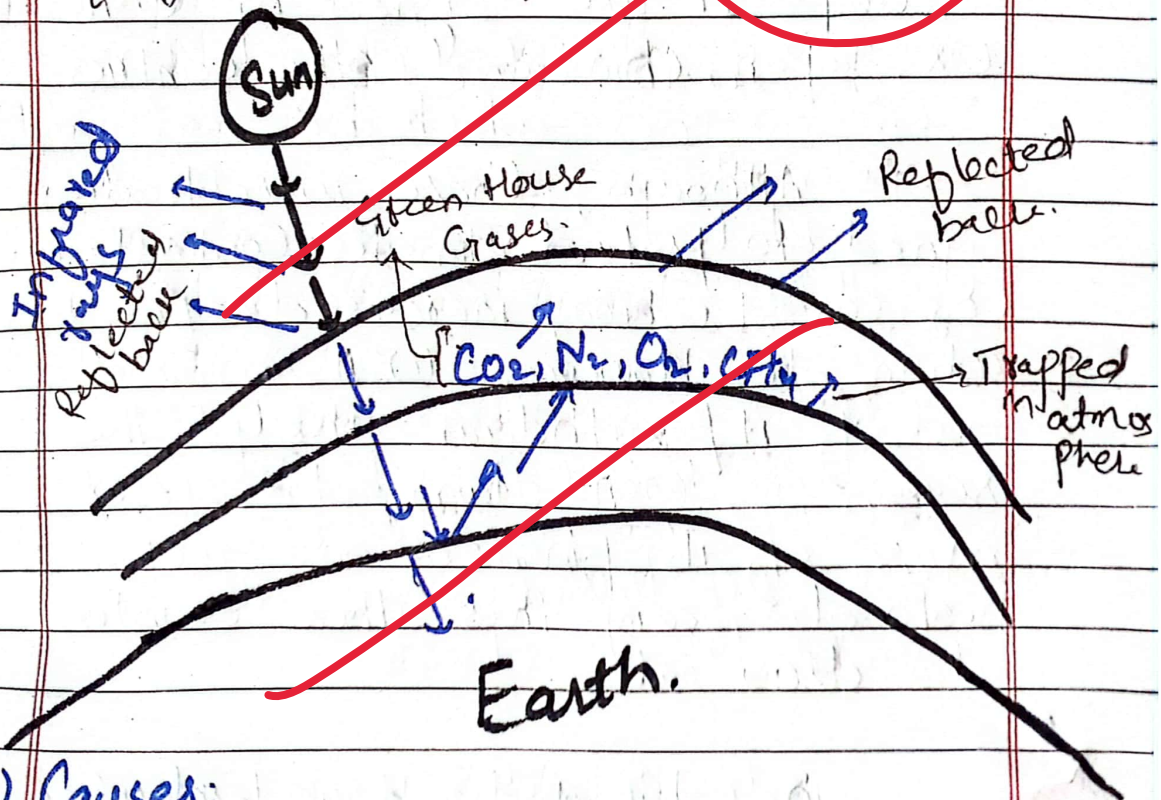 Sun
Infrared
rays
Reflected
back
Green House
Gases.
Reflected
back.
[CO2, N2, O2, CH4
Trapped
in atmos
phere
Earth.
) Causes.